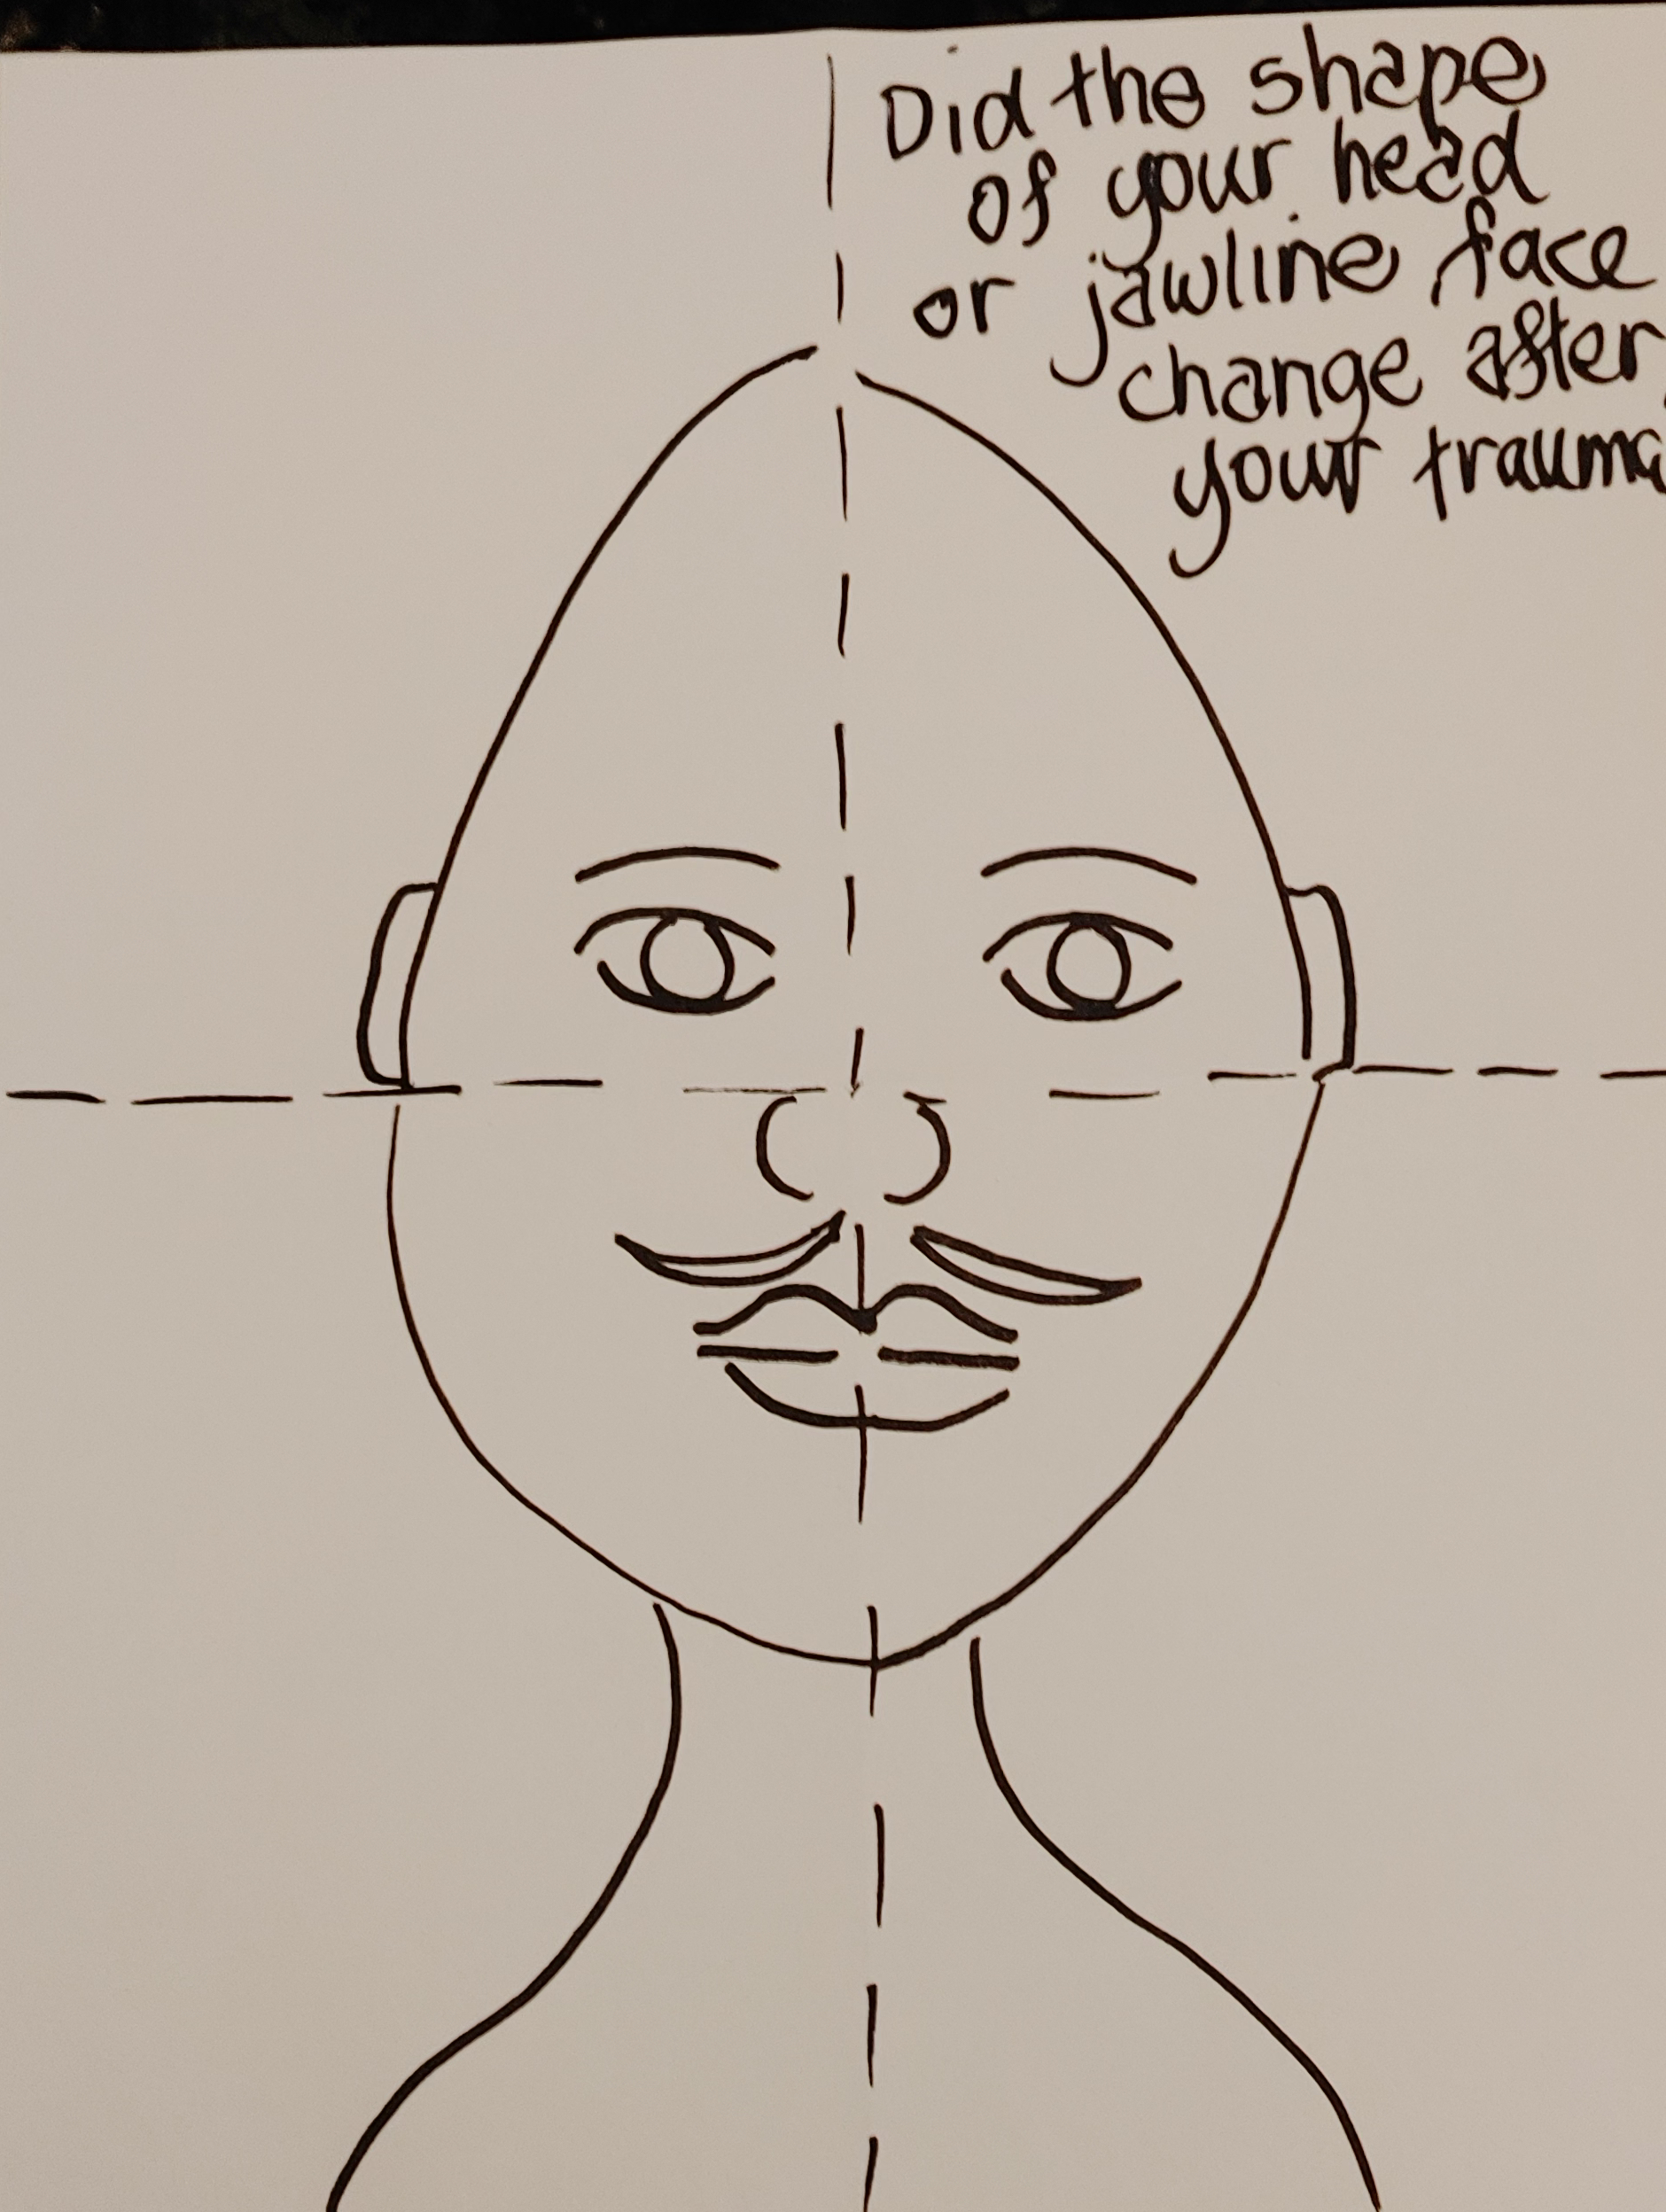 Did the shape
of your head
or jawline face
change after
your trauma